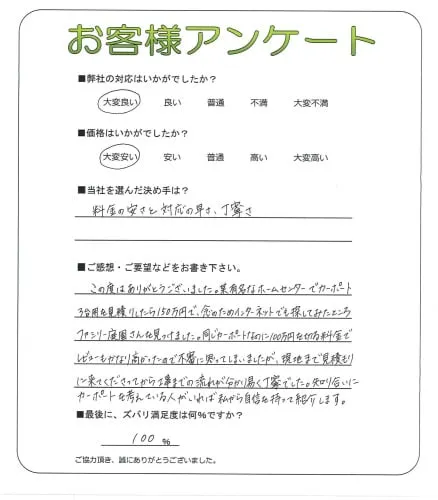 お客様アンケート
■弊社の対応はいかがでしたか？
大変良い 良い 普通 不満 大変不満
■価格はいかがでしたか？
大変安い 安い 普通 高い 大変高い
■当社を選んだ決め手は？
料金の安さと対応の早さ、丁寧さ
■ご感想・ご要望などをお書き下さい。
この度はありがとうございました。某有名なホームセンターでカーポート
3台用を見積りしたら150万円で、念のためインターネットでも探してみたところ
ファミリー庭園さんを見つけました。同じカーポートなのに100万円をきる料金で
レビューもかなり高かったので不審に思ってしまいましたが、現地まで見積もり
に来てくださってから工事までの流れが分かり易く丁寧でした。知り合いに
カーポートを考えている人がいれば私から自信を持って紹介します。
■最後に、ズバリ満足度は何%ですか？
100 %
ご協力頂き、誠にありがとうございました。